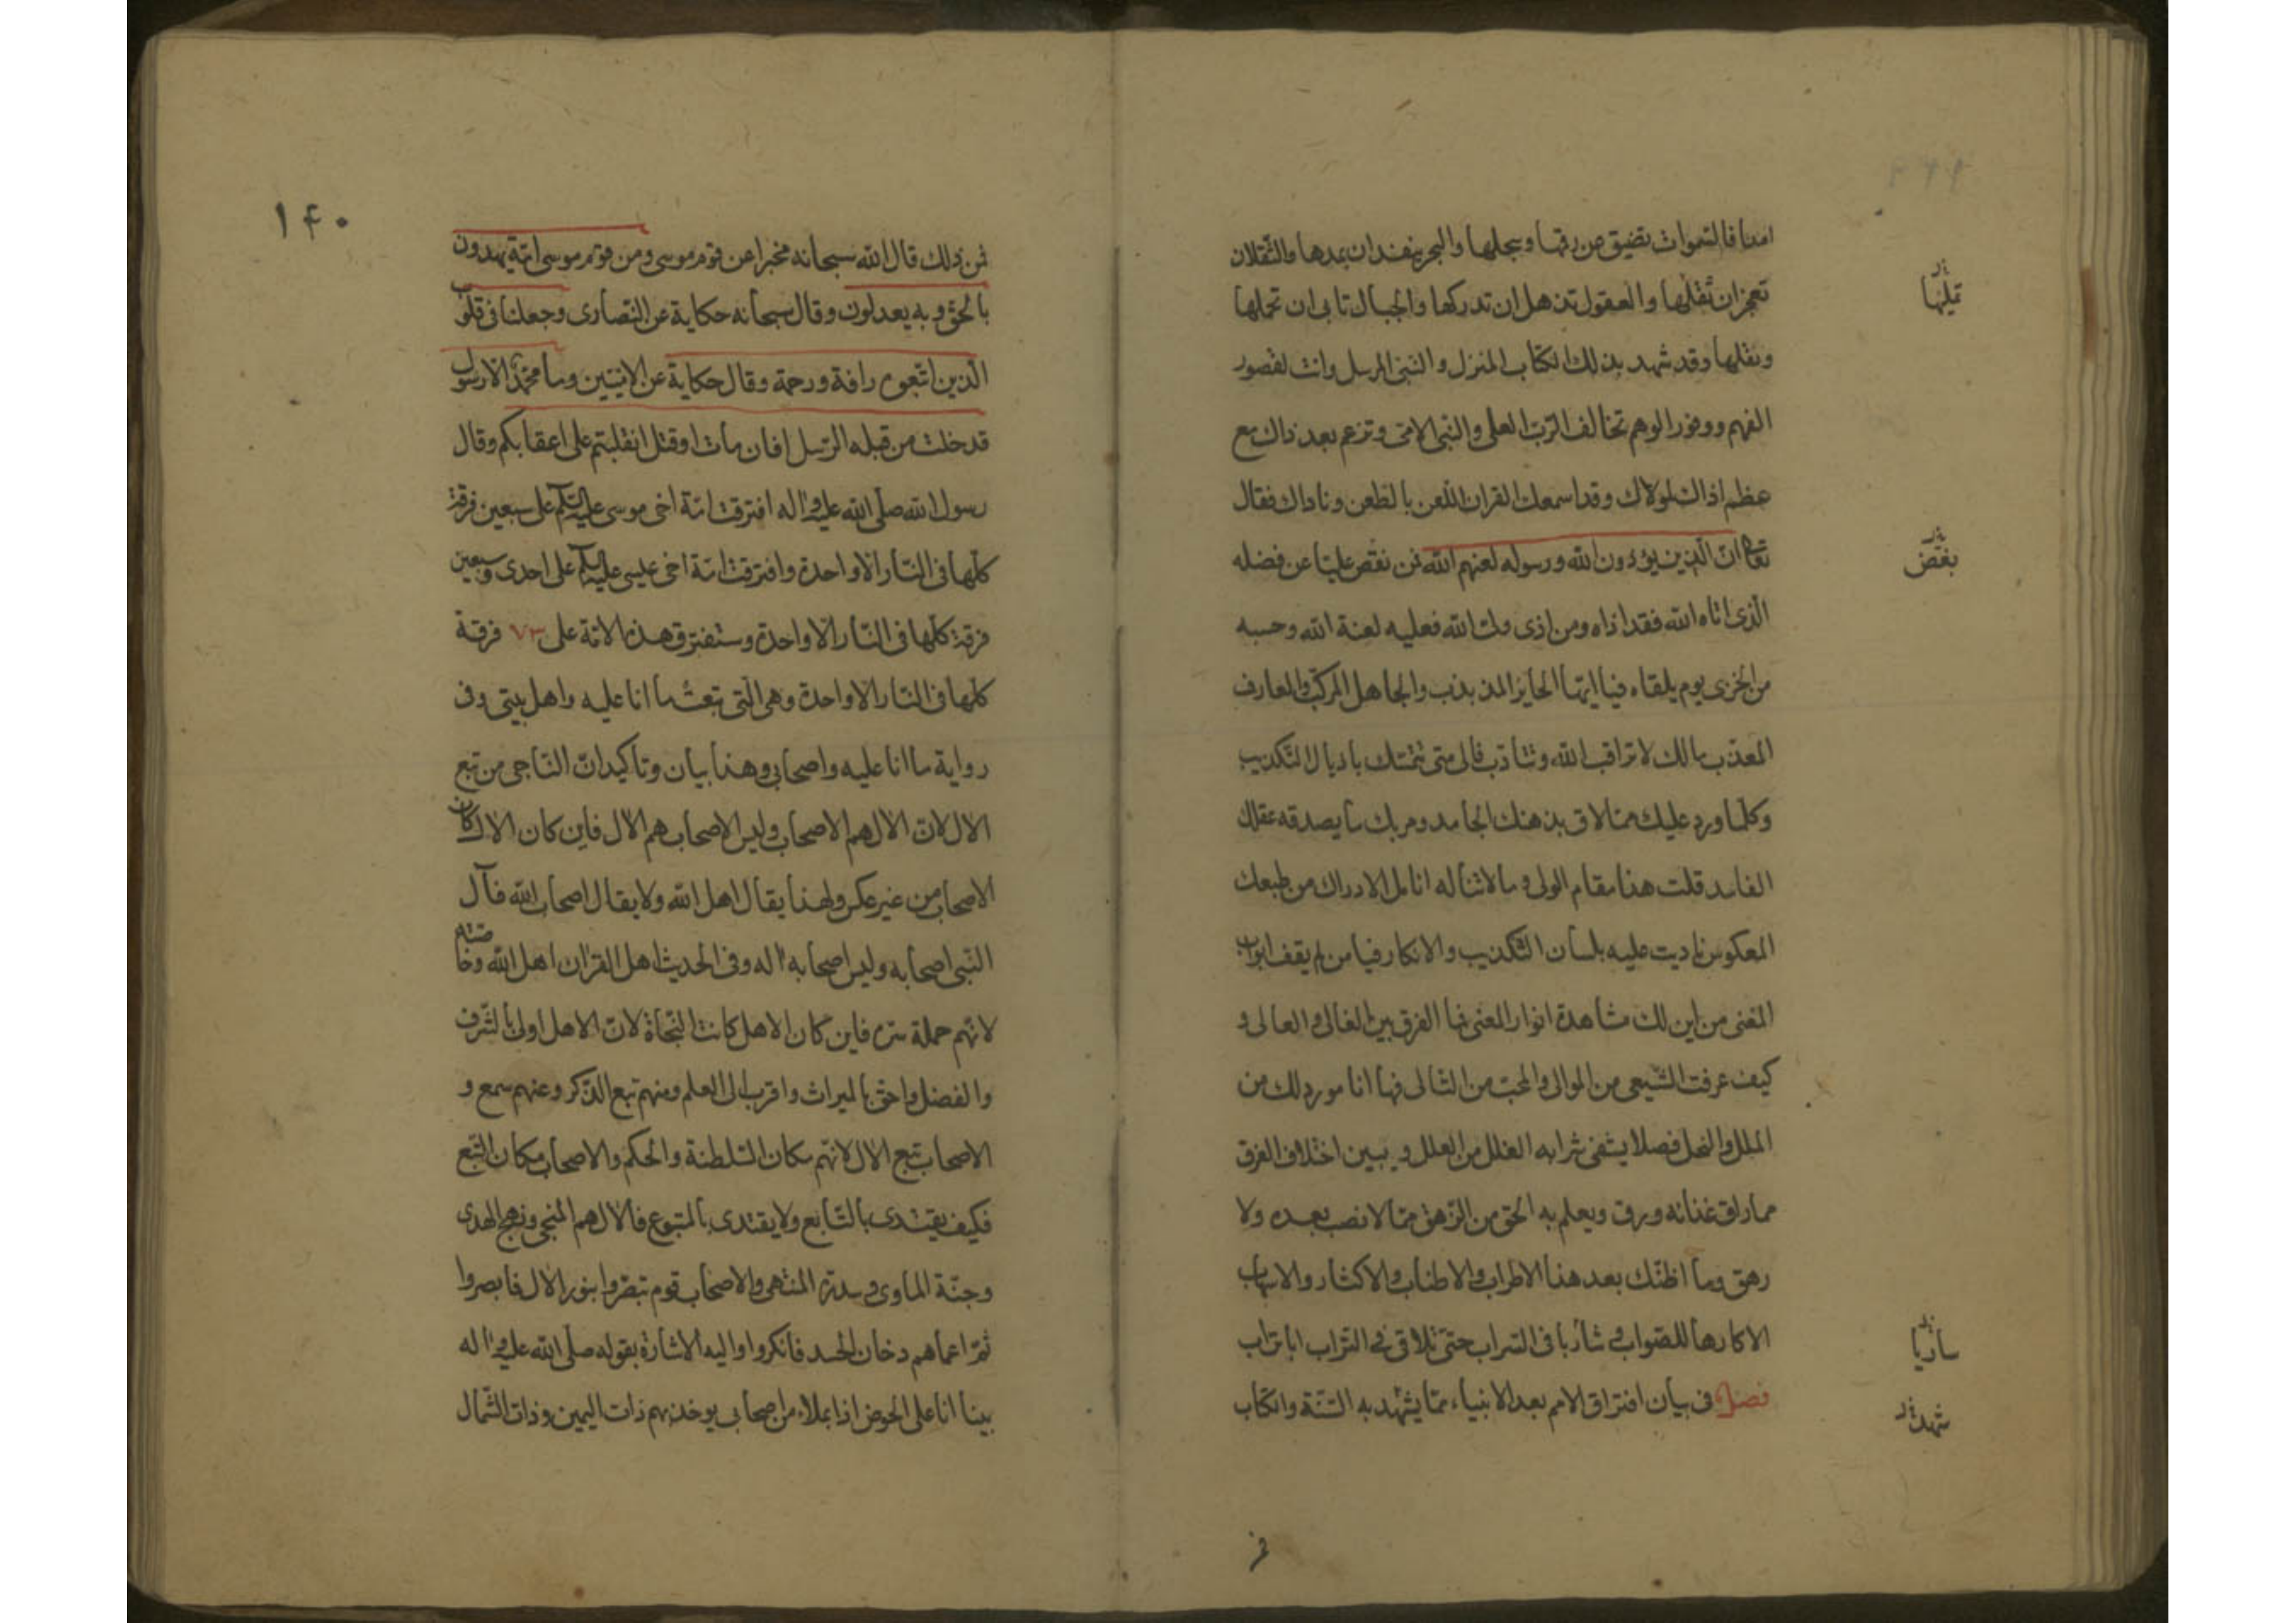 امنا فالسموات تضيق عن رقها وسجلها والبحر ينفد ان يمدها والثقلان
تعجز ان تقلها والعقول تذهل ان تدركها والجبال تابى ان تحملها
وتقلها وقد شهد بذلك الكتاب المنزل والنبى المرسل وانت لقصور
الفهم ووفور الوهم تخالف الرب العلى والنبى الامى وتزعم بعد ذاك مع
عظم اذاك لمولاك وقد اسمعك القران اللعن بالطعن وناداك فقال
تعالى ان الذين يؤذون الله ورسوله لعنهم الله فمن نقص عليا عن فضله
الذى اتاه الله فقد اذاه ومن اذى ولى الله فعليه لعنة الله وحسبه
من الخزى يوم يلقاه فيا ايها الحاير المذبذب والجاهل المركب والعارف
المعذب مالك لا تراقب الله وتتادب فالى متى تتمسك باذيال التكذيب
وكلما ورد عليك مما لاق بذهنك الجامد ومر بك ما يصدقه عقلك
الفاسد قلت هذا مقام الولى وما لا تناله انامل الادراك من طبعك
المعكوس ناديت عليه بلسان التكذيب والانكار فيا من لم يقف ابواب
المغنى من اين لك مشاهدة انوار المعنى فما الفرق بين الغالى والعالى و
كيف عرفت الشيعى من الموالى والمحب من التالى فها انا مورد لك من
الملل والنحل فصلا يشفى شرابه الغلل من العلل ويبين اختلاف الفرق
مما راق عنانه ورق ويعلم به الحق من الزهق مما لا نصب بعده ولا
رهق وما اظنك بعد هذا الاطراب والاطناب والاكثار والاسهاب
الا كارها للصواب وشاربا فى السراب حتى تلاقى فى التراب ابا تراب
فصل فى بيان افتراق الامم بعد الانبياء مما يشهد به السنة والكتاب
تملها
بغض
ساربا
شهدت
فمن
١٤٠
فمن ذلك قال الله سبحانه مخبرا عن قوم موسى ومن قوم موسى امة يهدون
بالحق وبه يعدلون وقال سبحانه حكاية عن النصارى وجعلنا فى قلوب
الذين اتبعوه رافة ورحمة وقال حكاية عن الاميين وما محمد الا رسول
قد خلت من قبله الرسل افان مات او قتل انقلبتم على اعقابكم وقال
رسول الله صلى الله عليه واله افترقت امة اخى موسى عليه السلام على سبعين فرقة
كلها فى النار الا واحدة وافترقت امة اخى عيسى عليه السلام على احدى وسبعين
فرقة كلها فى النار الا واحدة وستفترق هذه الامة على ٧٣ فرقة
كلها فى النار الا واحدة وهى التى تبعت ما انا عليه واهل بيتى وفى
رواية ما انا عليه واصحابى وهذا بيان وتاكيد ان الناجى من تبع
الال لان الال هم الاصحاب وليس الاصحاب هم الال فاين كان الال كان
الاصحاب من غير عكس ولهذا يقال اهل الله ولا يقال اصحاب الله فآل
النبى اصحابه وليس اصحابه اله وفى الحديث اهل القران اهل الله وخاصته
لانهم حملة سره فاين كان الاهل كانت النجاة لان الاهل اولى بالشرف
والفضل واحق بالميراث واقرب الى العلم ومنهم تبع الذكر وعنهم سمع و
الاصحاب تبع الال لانهم مكان السلطنة والحكم والاصحاب مكان التبع
فكيف يقتدى بالتابع ولا يقتدى بالمتبوع فالال هم المنجى ونهج الهدى
وجنة الماوى وسدرة المنتهى والاصحاب قوم تبصروا بنور الال فابصروا
ثم اعماهم دخان الحسد فانكروا واليه الاشارة بقوله صلى الله عليه واله
بينا انا على الحوض اذا بملاء من اصحابى يوخذ بهم ذات اليمين وذات الشمال